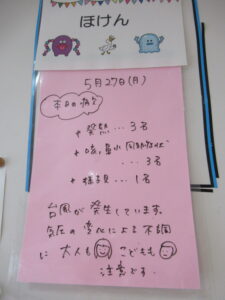 ほけん
5月27日(月)
本日の病欠
+ 発熱 … 3名
+ 咳、鼻水 風邪症状
… 3名
+ 様子見 … 1名
台風が発生しています。
気圧の変化による不調
に 大人も こどもも
注意です